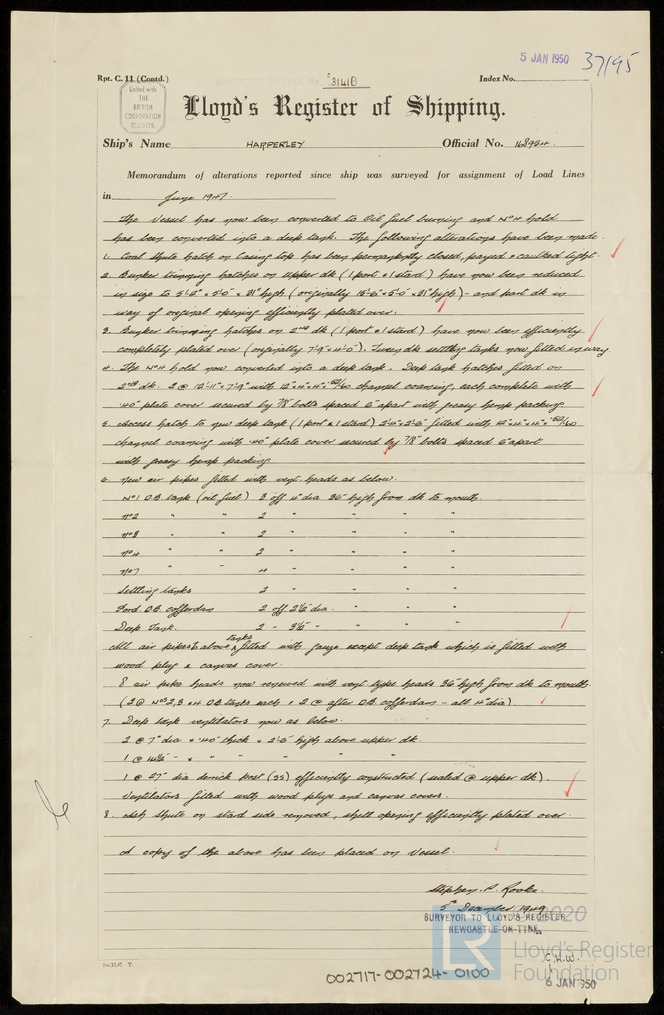 5 JAN 1950
37195
Rpt. C. 11 (Contd.)
31418
Index No.
United with
THE
BRITISH
CORPORATION
REGISTER.
Lloyd's Register of Shipping.
Ship's Name HARPERLEY Official No. 168954
Memorandum of alterations reported since ship was surveyed for assignment of Load Lines
in June 1947.
The Vessel has now been converted to Oil fuel burning and No4 hold
has been converted into a deep tank. The following alterations have been made.
1. Coal Shute hatch on Casing top has been permanently closed, payed & caulked tight.
2. Bunker trimming hatches on upper dk (1 port & 1 stard) have now been reduced
in size to 5'-2" × 5'-0" × 31" high (originally 15'-6" × 5'-0" × 31" high) - and part dk in
way of original opening efficiently plated over.
3. Bunker trimming hatches on 2nd dk (1 port & 1 stard) have now been efficiently
completely plated over (originally 7'-9" × 4'-0"). Tween dk settling tanks now fitted in way.
4. The No4 hold now converted into a deep tank. Deep tank hatches fitted on
2nd dk. 2 @ 12'-11" × 7'-9" with 12" × 4" × 4" channel coaming, each complete with
.40" plate cover secured by 7/8" bolts spaced 6" apart with greasy hemp packing
5. Access hatch to new deep tank (1 port & 1 stard) 2'-4" × 2'-6" fitted with
channel coaming with .40" plate cover secured by 7/8" bolts spaced 6" apart
with greasy hemp packing
6. New air pipes fitted with vent heads as below.
No1 D.B. tank (oil fuel) 3 off 4" dia 36" high from dk to mouth.
No2 " " 2 " " " "
No3 " " 2 " " " "
No4 " " 2 " " " "
No7 " " 4 " " " "
Settling tanks 2 " " " "
Ford D.B. cofferdam 2 off 2½" dia. " " "
Deep Tank. 2 - 3½" " " " "
All air pipes to above tanks fitted with gauze except deep tank which is fitted with
wood plug & canvas cover.
8 air pipe heads now renewed with vent type heads 36" high from dk to mouth
(2 @ Nos 2, 3 & 4 D.B. tanks each & 2 @ after D.B. cofferdam - all 4" dia)
7. Deep tank ventilators now as below.
2 @ 7" dia × .40" thick × 2'-6" high above upper dk.
1 @ 4½" - × " " " " "
1 @ 27" dia derrick post efficiently constructed (sealed @ upper dk).
Ventilators fitted with wood plugs and canvas covers.
8. Ash Shute on stard side removed, shell opening efficiently plated over.
A copy of the above has been placed on Vessel.
Stephen. P. Rooke.
5th December, 1949
SURVEYOR TO LLOYD'S REGISTER
NEWCASTLE-ON-TYNE.
2020
LR
Lloyd's Register
Foundation
6 JAN 1950
002717-002724-0100